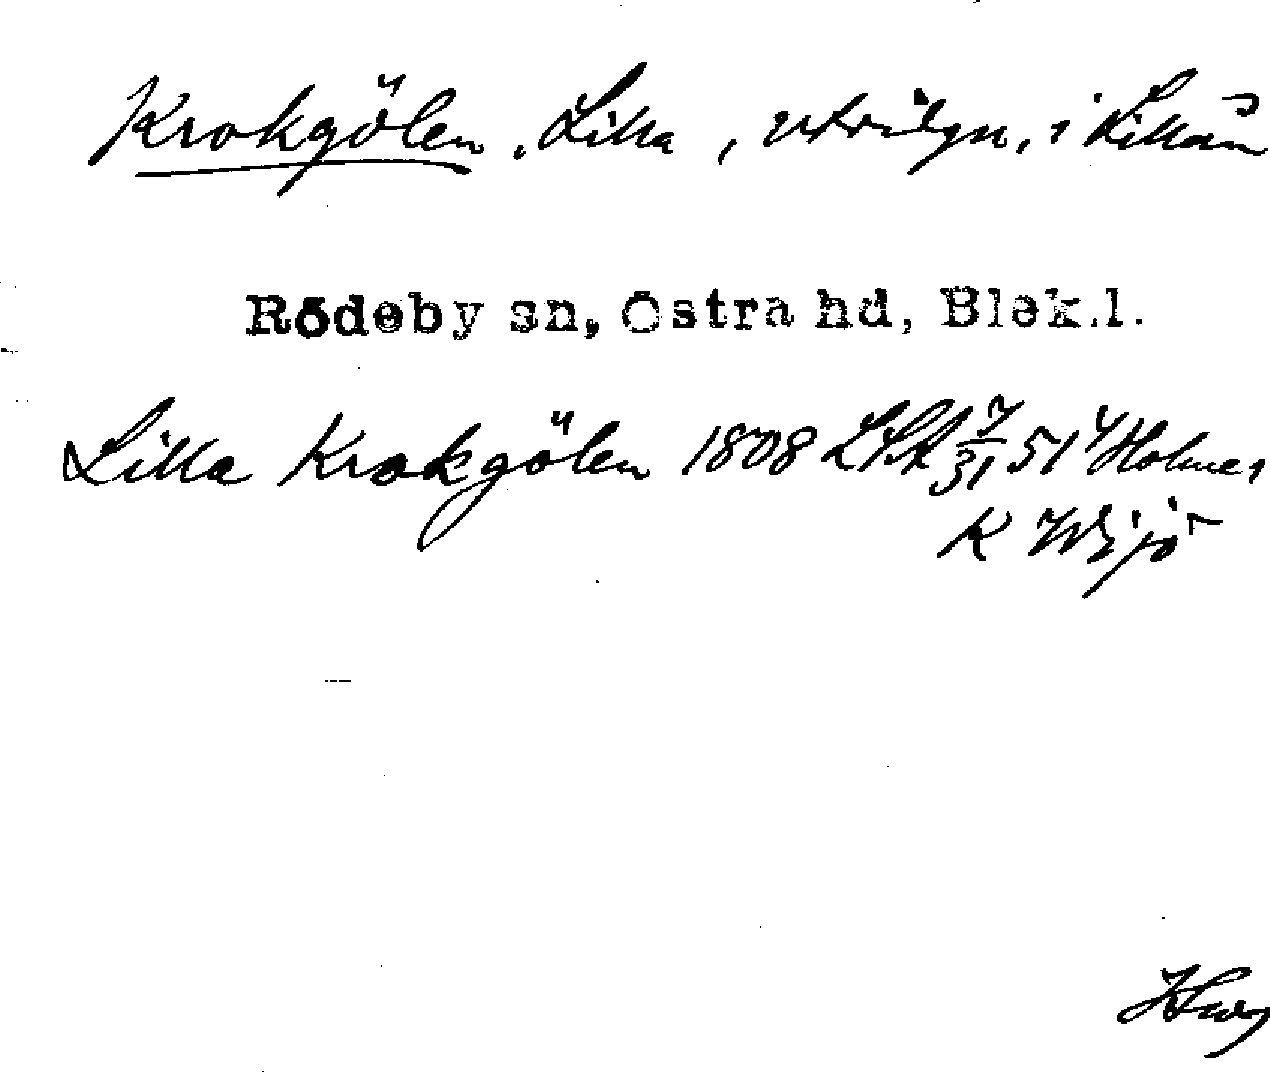 Krokgölen, Lilla, utvidgn, i Lillån
Rödeby sn, Östra hd, Blek.l.
Lilla Krokgölen 1808 LSA 7/31 51 Holmes
K